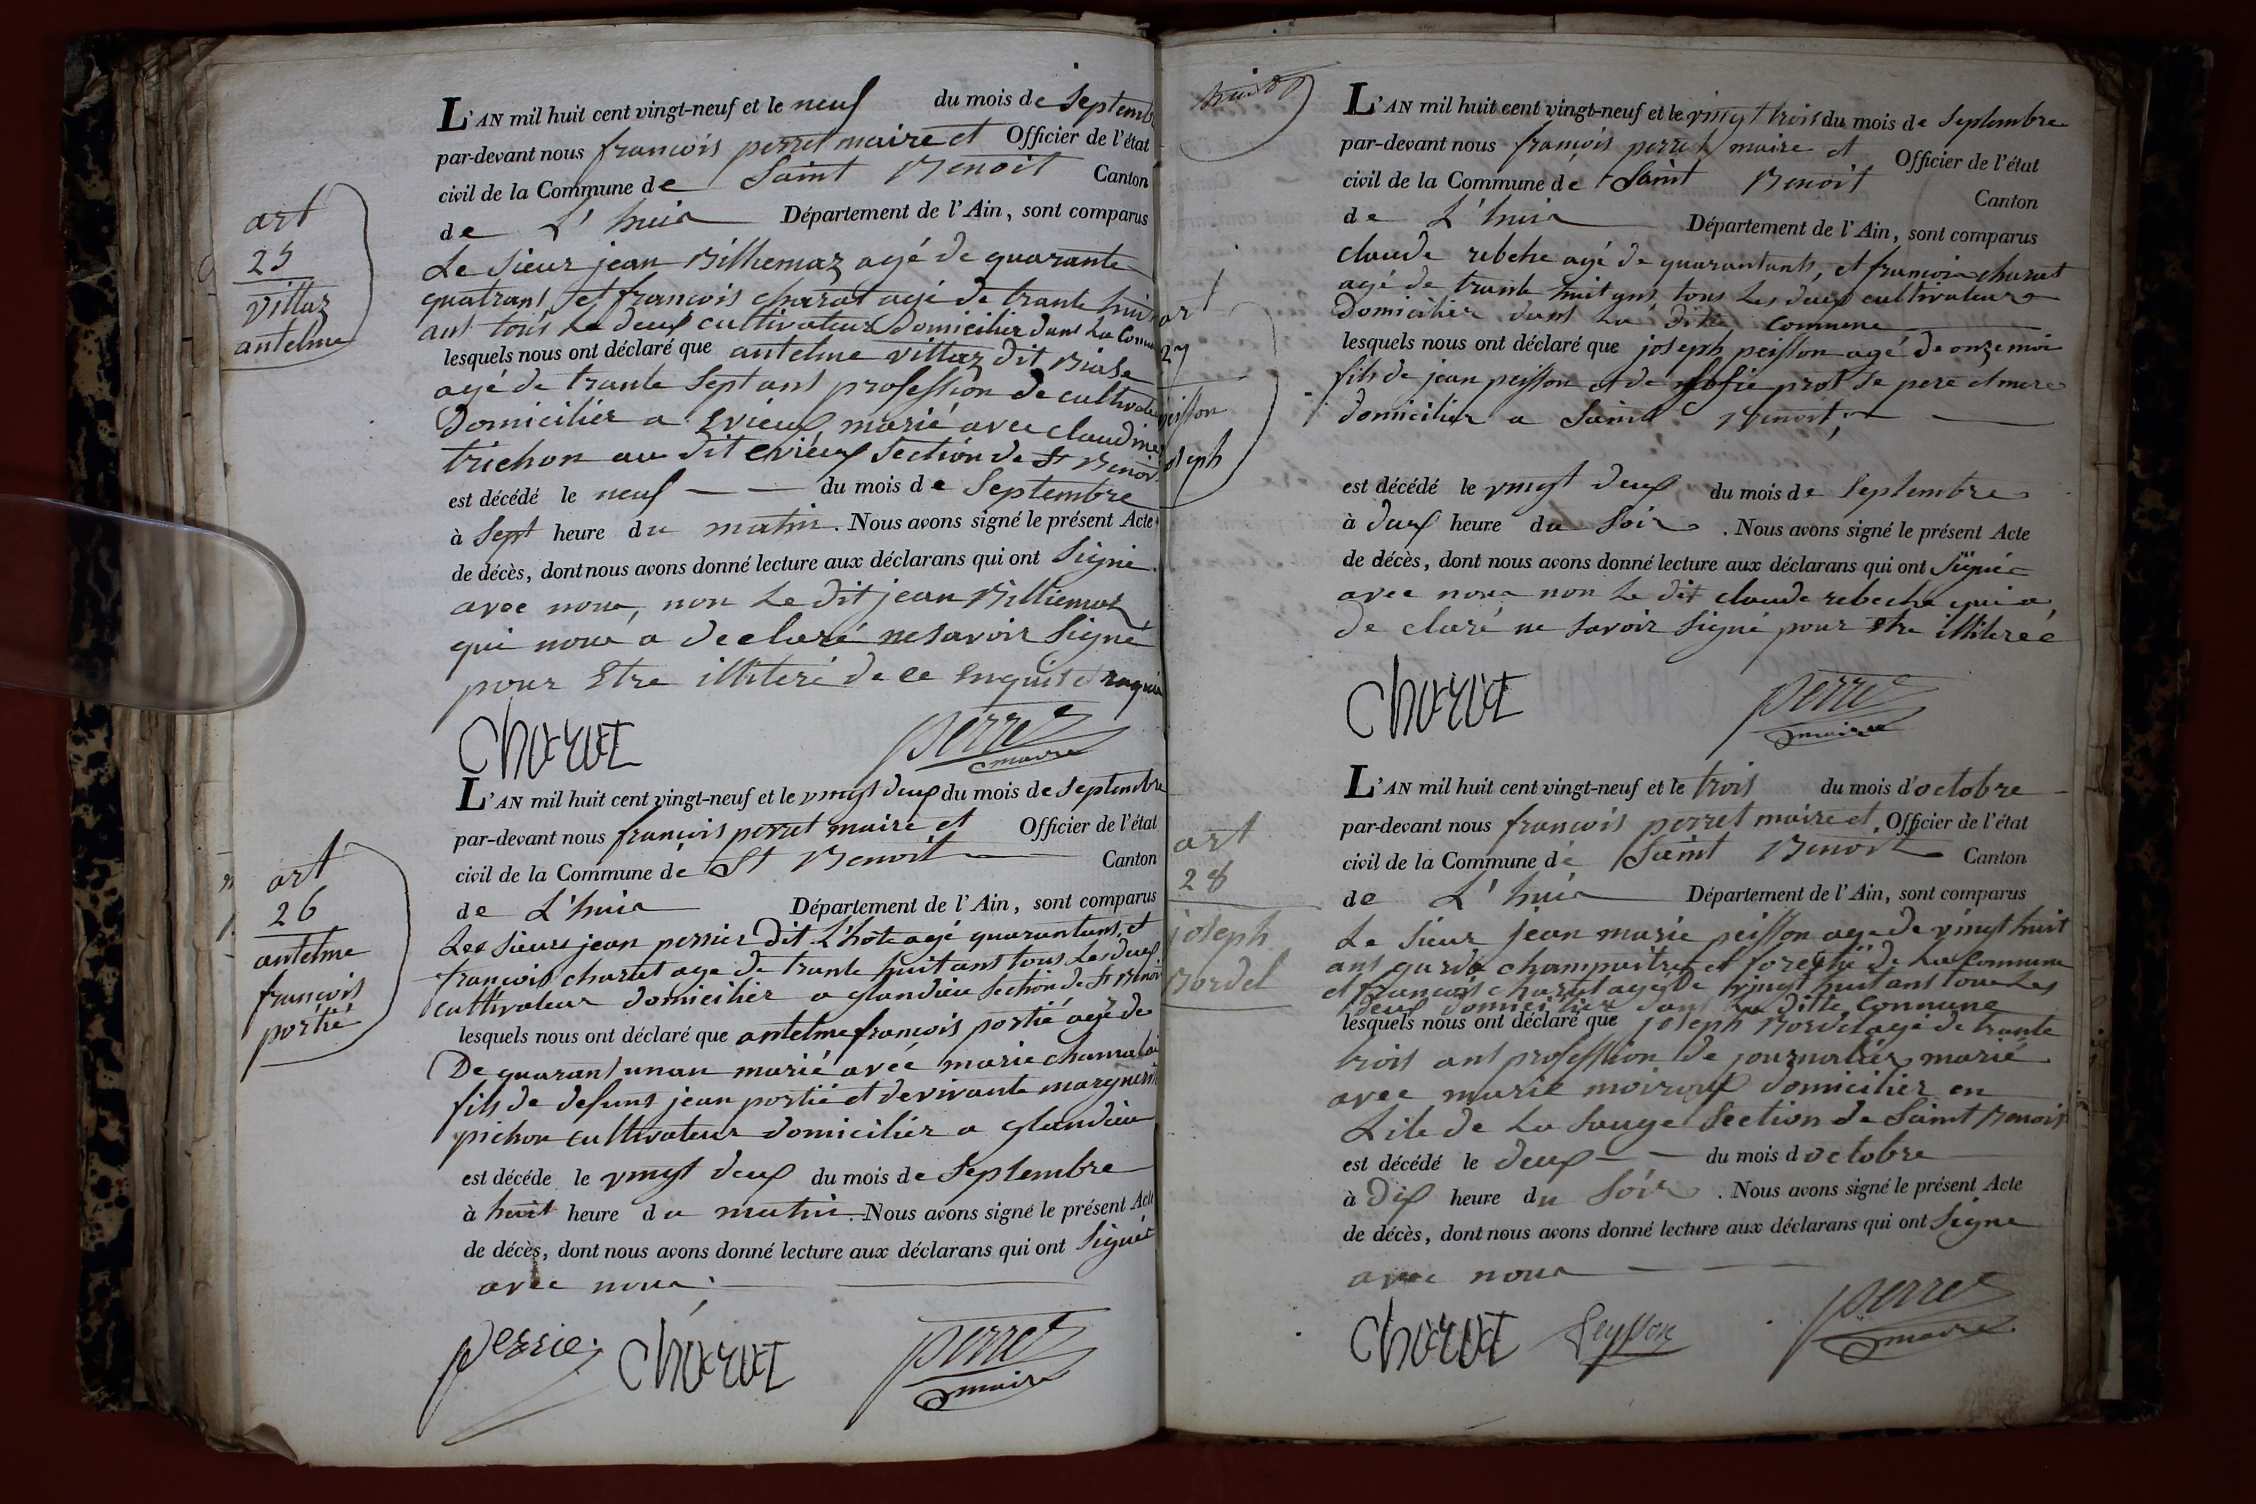 art
25
villaz
antelme
L'AN mil huit cent vingt-neuf et le neuf du mois de septemb
par-devant nous francois perret maire et Officier de l'état
civil de la Commune de Saint Benoit Canton
de L'huis Département de l'Ain, sont comparus
Le sieur jean Billiemaz agé de quarante
quatrans et francois charat agé de trante huit
ans tous Le deux cultivateur domicilier dans La Comm
lesquels nous ont déclaré que antelme villaz dit Biase
agé de trante sept ans profession de cultivate
domicilier a Evieux marié avec claudine
trichon au dit evieux section de St Benoit
est décédé le neuf du mois de Septembre
à sept heure du matin. Nous avons signé le présent Acte
de décès, dont nous avons donné lecture aux déclarans qui ont signé
avec nous, non Le dit jean Billiemaz
qui nous a declaré ne savoir signé
pour Etre illiteré de ce Enquis et requis
Charat perret maire
art
26
antelme
francois
portié
L'AN mil huit cent vingt-neuf et le vingt deux du mois de septembre
par-devant nous francois perret maire et Officier de l'état
civil de la Commune de St Benoit Canton
de L'huis Département de l'Ain, sont comparus
Les sieurs jean perrier dit L'hôte agé quarantans, et
francois charat age de trante huit ans tous Les deux
cultivateur domicilier a glandieu section de St Benoit
lesquels nous ont déclaré que antelme francois portié agé de
De quarant unan marié avéc marie
fils de defunt jean portié et de vivante marguerit
pichon cultivateur domicilier a glandieu
est décédé le vingt deux du mois de Septembre
à huit heure du matin. Nous avons signé le présent Acte
de décès, dont nous avons donné lecture aux déclarans qui ont signés
avec nous.
perrier Charat perret maire
L'AN mil huit cent vingt-neuf et le vingt trois du mois de septembre
par-devant nous francois perret maire et Officier de l'état
civil de la Commune de Saint Benoit Canton
de L'huis Département de l'Ain, sont comparus
claude rebche agé de quarantans, et francois charat
agé de trante huit ans, tous Les deux cultivateurs
Domicilier dans La dite commune
lesquels nous ont déclaré que joseph peisson agé de onze moi
fils de jean peisson et de sofie prost se pere et mere
domicilier a Saint Benoit,
est décédé le vingt deux du mois de Septembre
à deux heure du soir. Nous avons signé le présent Acte
de décès, dont nous avons donné lecture aux déclarans qui ont signé
avec nous non Le dit claude rebche qui a
de claré ne savoir signé pour etre illiteré
Charat perret maire
art
27
peisson
joseph
L'AN mil huit cent vingt-neuf et le trois du mois d'octobre
par-devant nous francois perret maire et Officier de l'état
civil de la Commune de Saint Benoit Canton
de L'huis Département de l'Ain, sont comparus
Le sieur jean marie peisson age de vingt huit
ans garde champaitre et foretié de La Commune
et francois charat agé de vingt huit ans tous Les
deux domicilier dans La ditte Commune
lesquels nous ont déclaré que joseph Bordel agé de trante
trois ans profession de journalier marié
avec marie moiroux domicilier en
L'ile de La Sauge Section de Saint Benoit
est décédé le deux du mois d octobre
à Dix heure du Soir. Nous avons signé le présent Acte
de décès, dont nous avons donné lecture aux déclarans qui ont signe
avec nous
Charat Peysson perret maire
art
28
joseph
Bordel